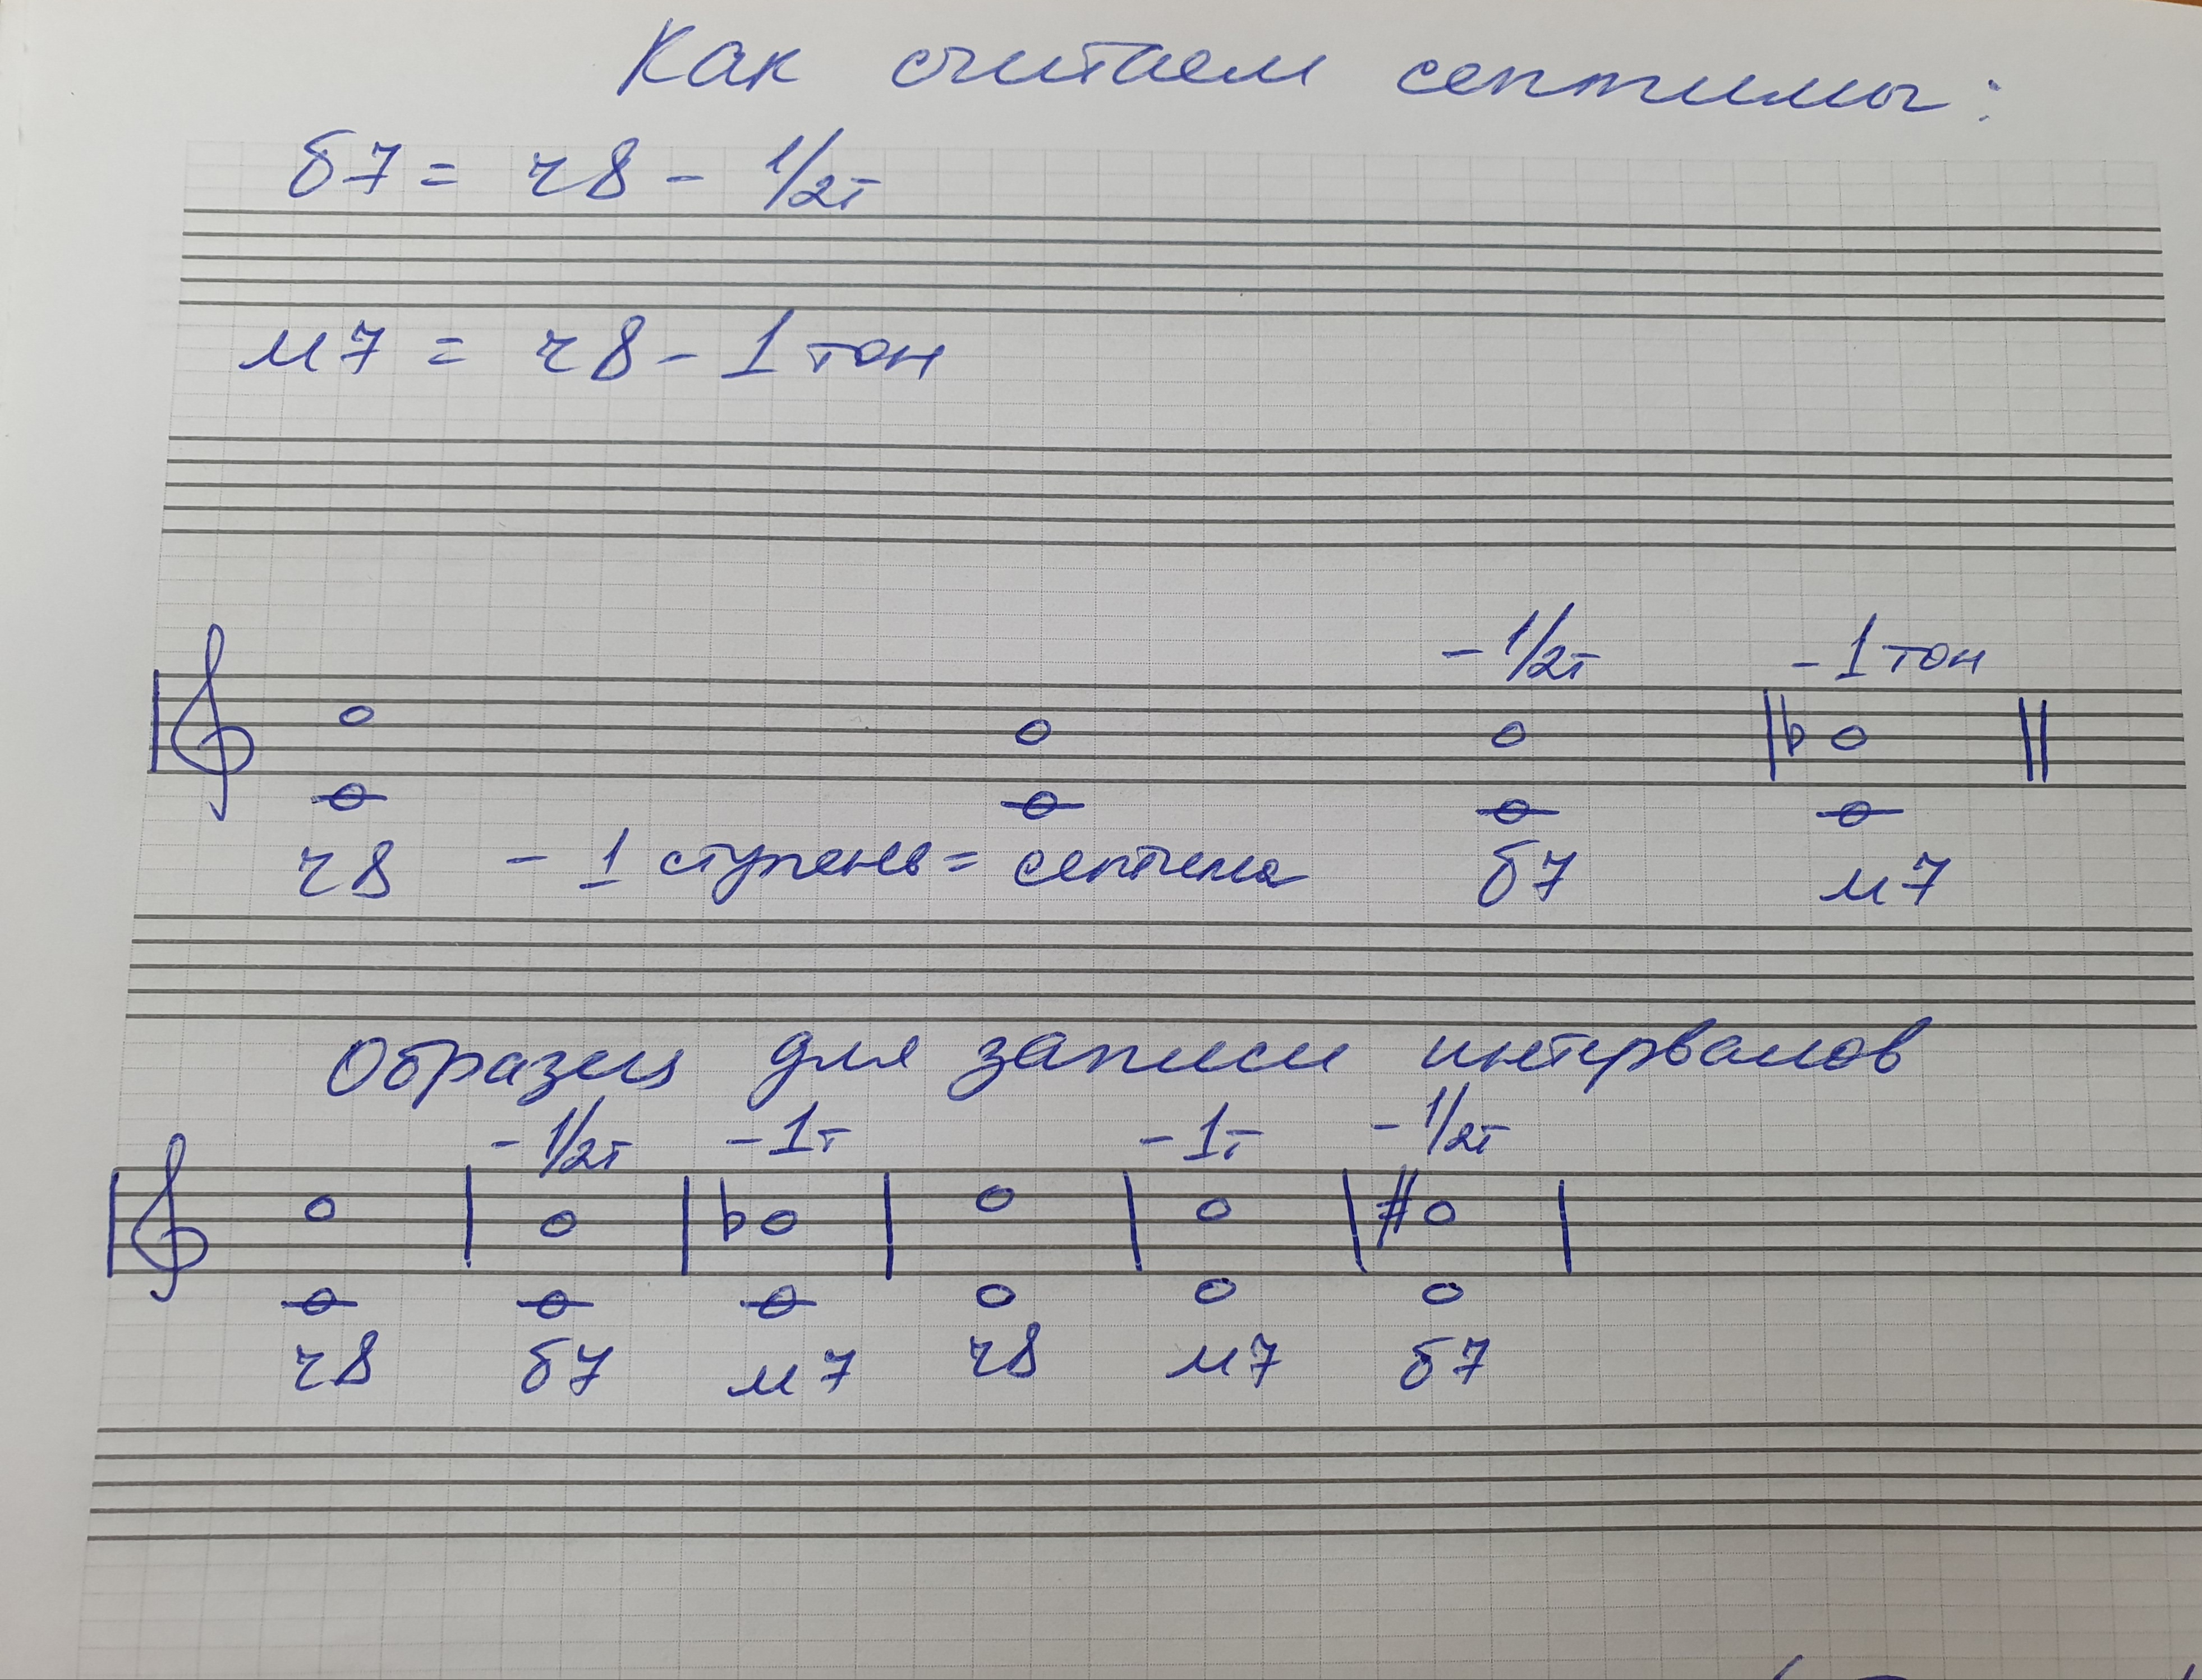 Как считаем септимы:
б7 = ч8 - 1/2т
м7 = ч8 - 1 тон
- 1/2т - 1 тон
ч8 - 1 ступень = септима б7 м7
Образец для записи интервалов
- 1/2т - 1т - 1т - 1/2т
ч8 б7 м7 ч8 м7 б7